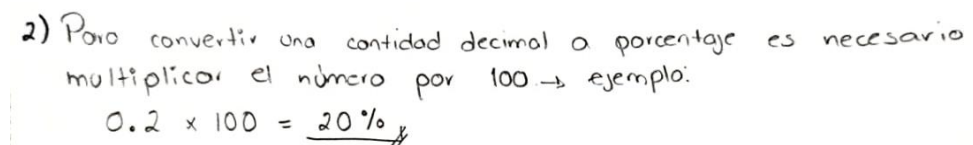 2) Para convertir una cantidad decimal a porcentaje es necesario
multiplicar el número por 100 → ejemplo:
0.2 x 100 = 20%